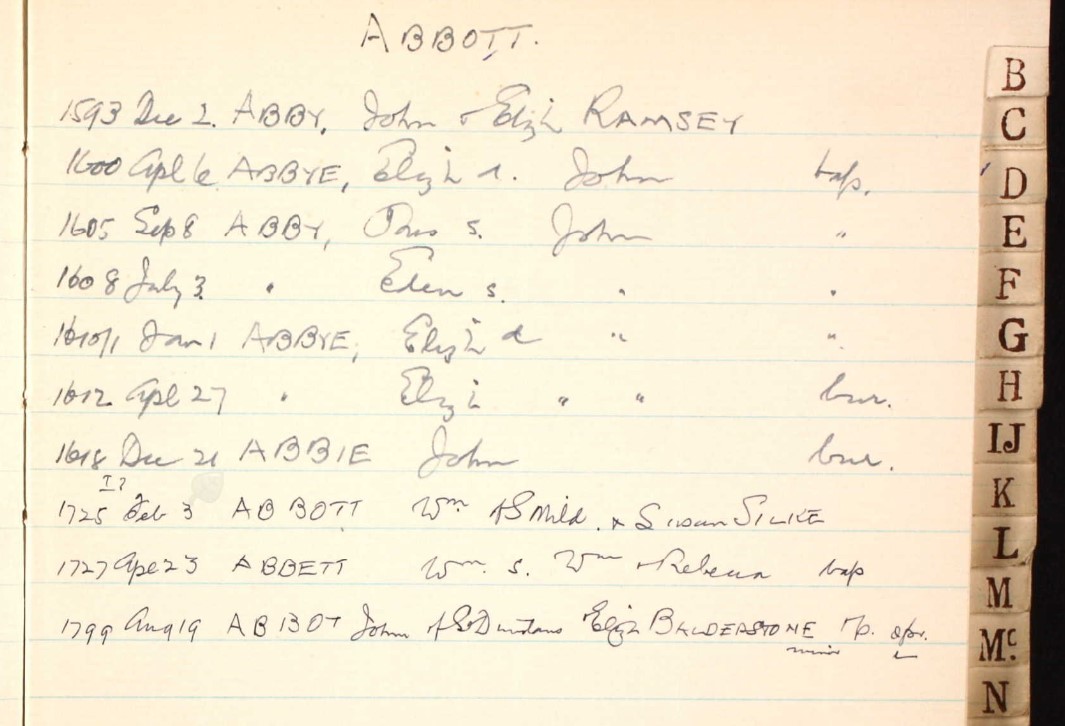 ABBOTT.
1593 Dec 2. ABBY, John & Elizh RAMSEY
1600 Apl 6 ABBYE, Elizh d. John bap.
1605 Sep 8 ABBY, s. John "
1608 July 3. " Eden s. " "
1610/1 Jan 1 ABBYE, Elizh d " "
1612 Apl 27 " Eliz " " bur.
1618 Dec 21 ABBIE John bur.
1725 Feb 3 ABBOTT Wm of S Mild. & Susan SILKE
1727 Apl 23 ABBETT Wm. s. Wm & Rebecca bap
1799 Aug 19 ABBOT John of S Dunstans Eliz BALDERSTONE
minor
B
C
D
E
F
G
H
IJ
K
L
M
Mc.
N